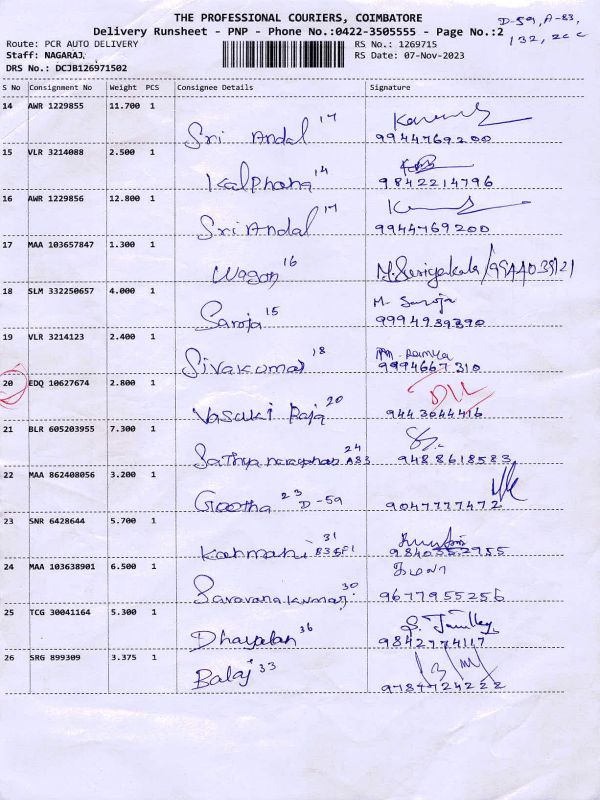 THE PROFESSIONAL COURIERS, COIMBATORE
D-59, A-83,
Delivery Runsheet - PNP - Phone No.:0422-3505555 - Page No.:2
132, 2cc
Route: PCR AUTO DELIVERY RS No.: 1269715
Staff: NAGARAJ. RS Date: 07-Nov-2023
DRS No.: DCJB126971502
S No Consignment No Weight PCS Consignee Details Signature
14 AWR 1229855 11.700 1
Sri Andal 17 9944769200
15 VLR 3214088 2.500 1
Kalphana 14 9842214796
16 AWR 1229856 12.800 1
Sri Andal 17 9944769200
17 MAA 103657847 1.300 1
Wagon 16
18 SLM 332250657 4.000 1 M. Saroja
Saroja 15 9994939390
19 VLR 3214123 2.400 1
Sivakumar 18 M. Ramya 9994667310
20 EDQ 10627674 2.800 1
Vasuki Raja 20 9443044416
21 BLR 605203955 7.300 1
Sathya narayanan 24 A83 9488618583
22 MAA 862408056 3.200 1
Geetha 23 D-59 9047777472
23 SNR 6428644 5.700 1
31
24 MAA 103638901 6.500 1 கமலா
Saravana kumar 30 9677955256
25 TCG 30041164 5.300 1
Dhayalan 36 9842774117
26 SRG 899309 3.375 1
Balaj 33 9784724222